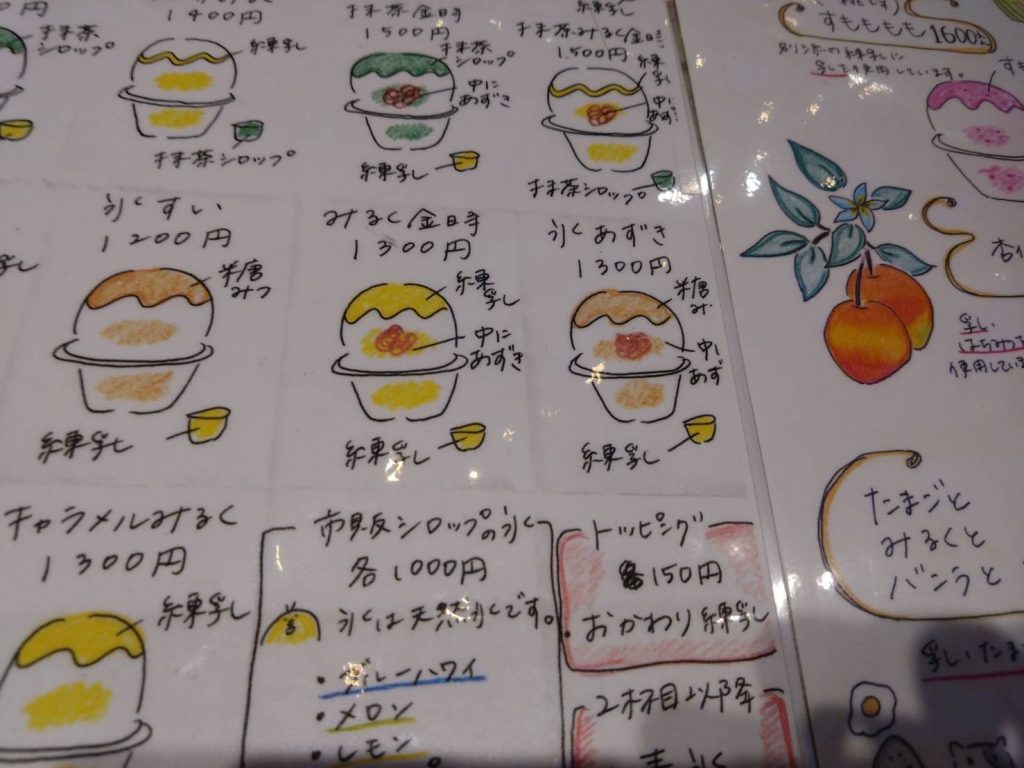 抹茶
シロップ
1400円
練乳
抹茶シロップ
抹茶金時
1500円
抹茶
シロップ
中に
あずき
練乳
練乳
抹茶みるく金時
1500円
練
乳
中に
抹茶シロップ
氷すい
1200円
糖
みつ
練乳
みるく金時
1300円
練
乳
中に
あずき
練乳
氷あずき
1300円
糖
み
中に
あず
練乳
キャラメルみるく
1300円
練乳
市販シロップの氷
各1000円
氷は天然氷です。
・ブルーハワイ
・メロン
・レモン
トッピング
各150円
・おかわり練乳
2杯目以降
すももももも 1600
別リンカーの練乳に
乳を使用しています。
乳
はちみつ
使用してい
たまごと
みるくと
バニラと
乳 たま